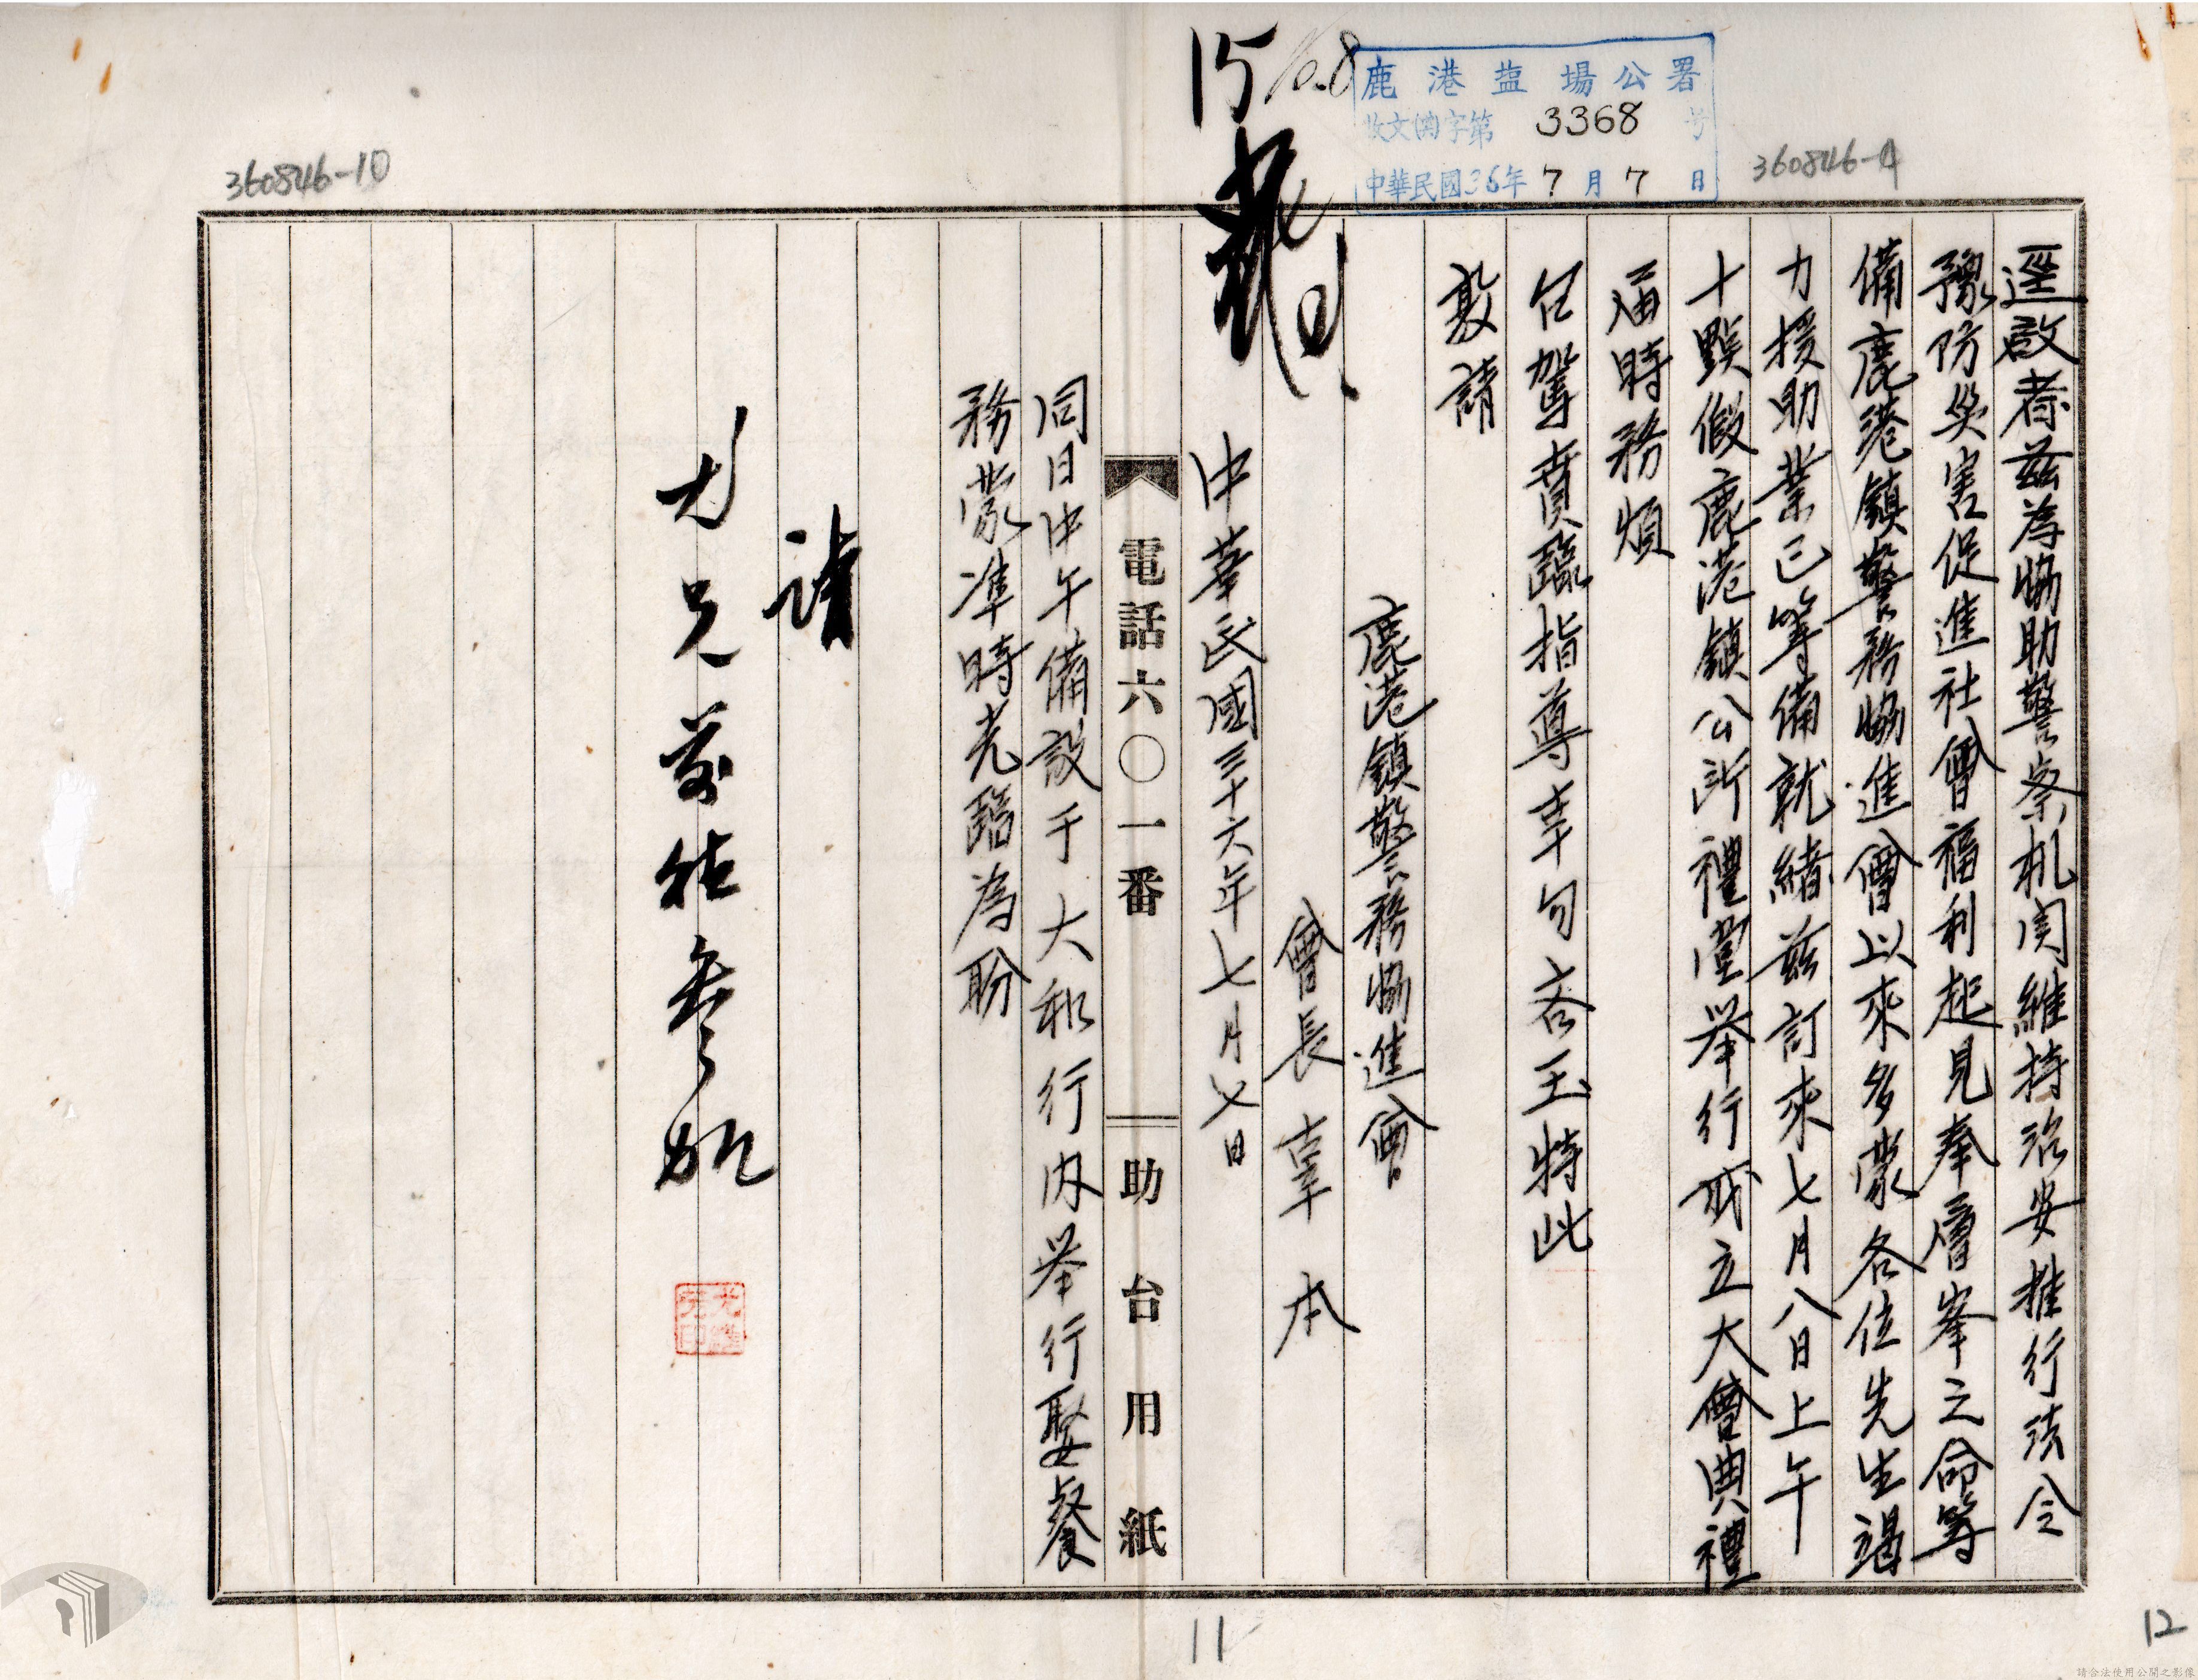 鹿港塩場公署
收文(鹵)字第3368号
中華民國36年7月7日
360846-9
360846-10
逕啟者茲為協助警察机関維持治安推行法令
豫防災害促進社會福利起見奉層峯之命籌
備鹿港鎮警務協進會以來多蒙各位先生竭
力援助業已籌備就緒茲訂來七月八日上午
十點假鹿港鎮公所禮堂舉行成立大會典禮
届時務煩
台駕賁臨指導幸勿吝玉特此
敦請
鹿港鎮警務協進會
會長 辜 本
中華民國三十六年七月七日
電話六〇一番
助台用紙
同日中午備設于大和行内举行聚餐
務蒙準時光臨為盼
請
尤兄前往參加
11
12
請合法使用公開之影像